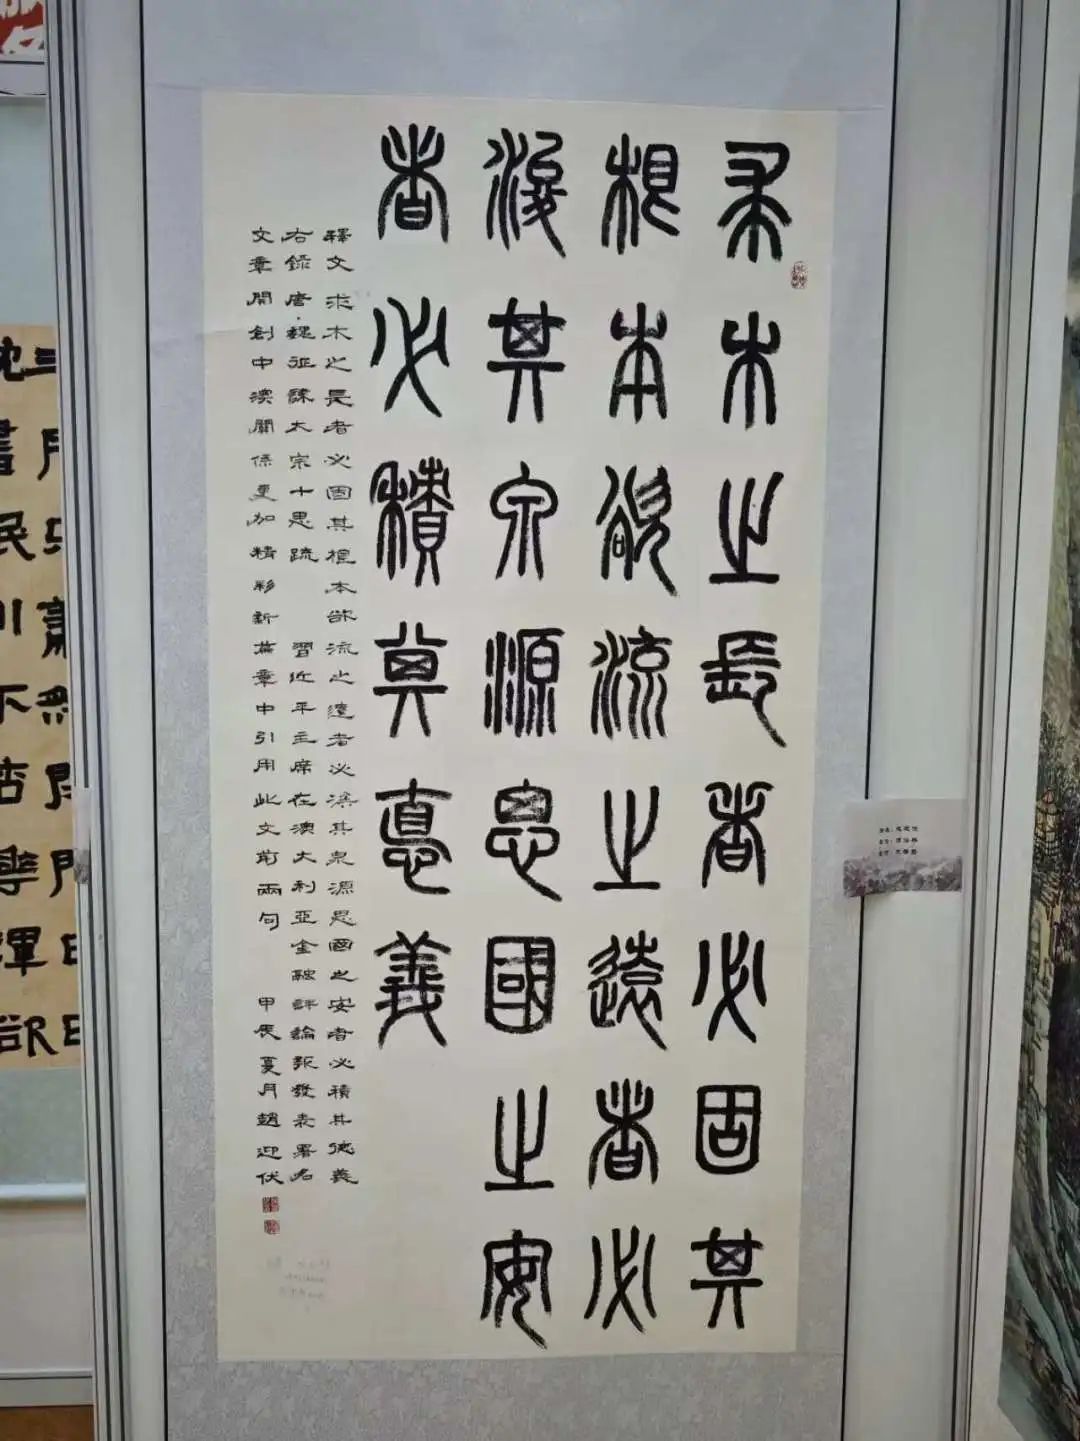 求木之長者必固其
根本欲流之遠者必
浚其泉源思國之安
者必積其惪義
釋文 求木之長者必固其根本欲流之遠者必浚其泉源思國之安者必積其德義
右錄唐·魏征諫太宗十思疏 習近平主席在澳大利亞金融評論報發表署名
文章開創中澳關係更加精彩新篇章中引用此文前兩句 甲辰夏月趙迎伏